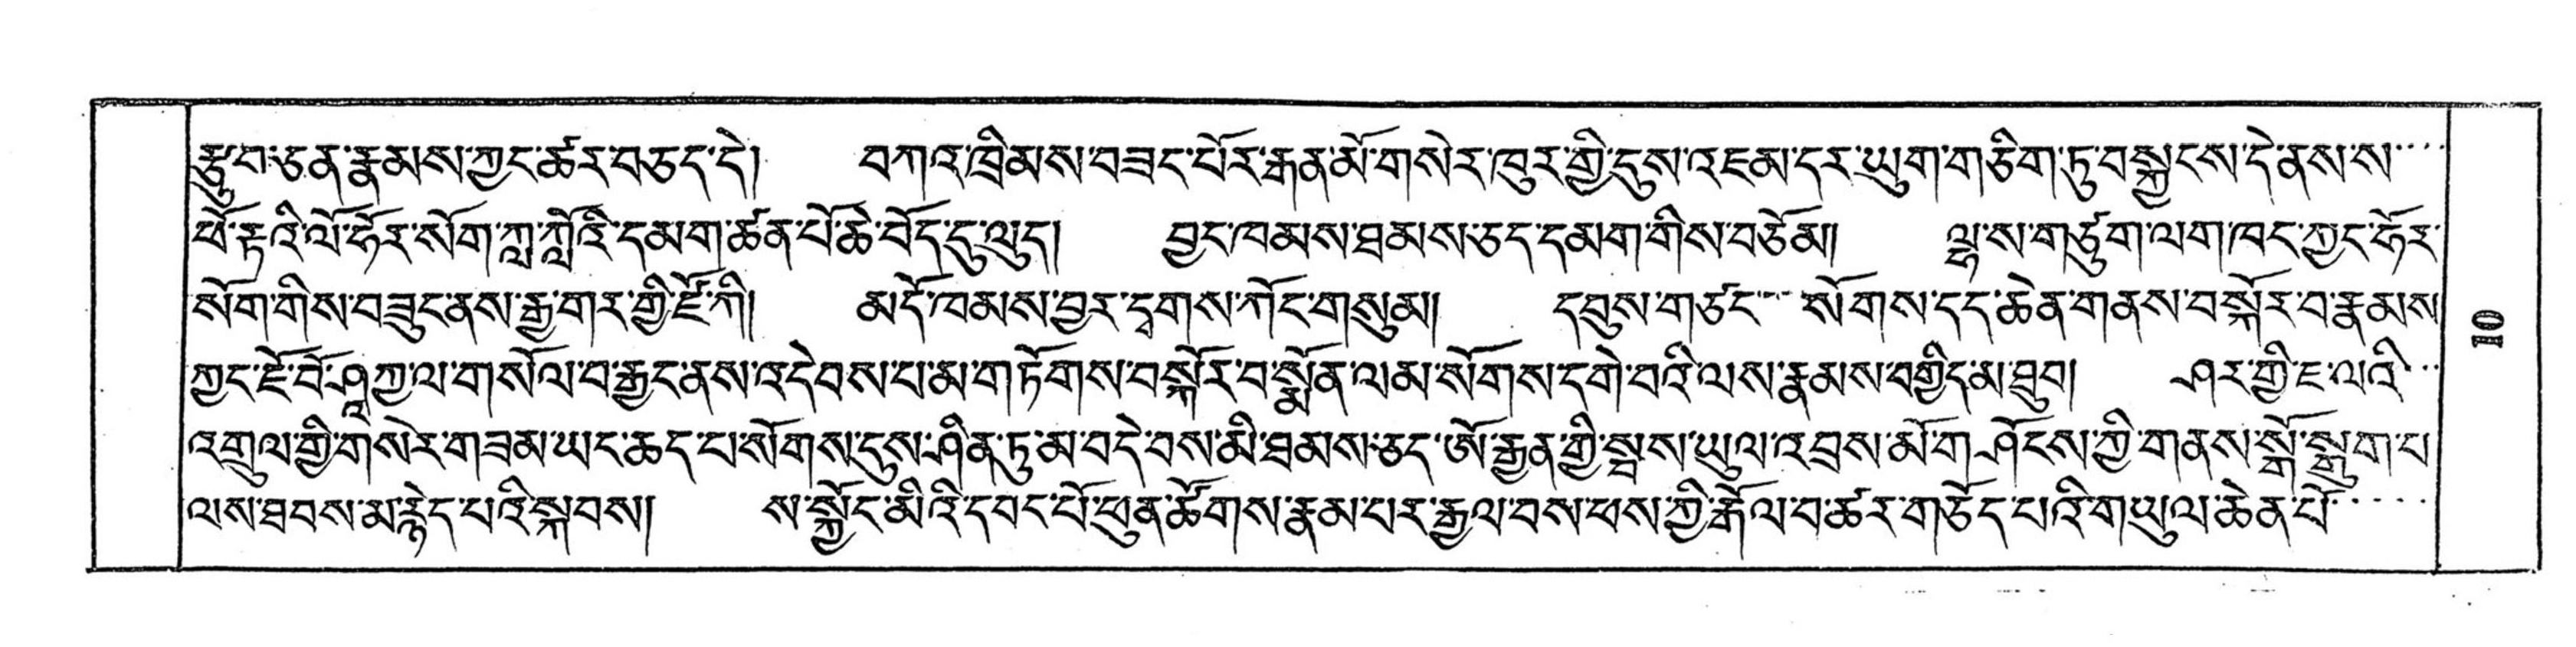 རྩུབ་ཅན་རྣམས་ཀྱང་ཚར་བཅད་དེ། བཀའ་ཁྲིམས་བཟང་པོར་རྒན་མོ་གསེར་ཁུར་གྱི་དུས་འཇམ་དར་ཡུག་གཅིག་ཏུ་བསྐྱངས་དེ་ནས་ས
ཕོ་རྟའི་ལོ་ཧོར་སོག་ཀླ་ཀློའི་དམག་ཚན་པོ་ཆེ་བོད་དུ་ལུད། བྱང་ཁམས་ཐམས་ཅད་དམག་གིས་བཅོམ། ལྷ་ས་གཙུག་ལག་ཁང་ཀྱང་ཧོར་
སོག་གིས་བཟུང་ནས་རྒྱ་གར་གྱི་ཛོ་ཀི། མདོ་ཁམས་བྱར་དྭགས་ཀོང་གསུམ། དབུས་གཙང་ སོགས་དད་ཆེན་གནས་བསྐོར་བ་རྣམས
ཀྱང་ཇོ་བོ་ཤཱཀྱ་ལ་གསོལ་བ་རྒྱང་ནས་འདེབས་པ་མ་གཏོགས་བསྐོར་བ་སྨོན་ལམ་སོགས་དགེ་བའི་ལས་རྣམས་བགྱིད་མ་ཐུབ། ཤར་གྱི་ཇ་ལའི་
འགྲུལ་གྱི་གསེར་གཟམ་ཡང་ཆད་པ་སོགས་དུས་ཤིན་ཏུ་མ་བདེ་བས་མི་ཐམས་ཅད་ཨོ་རྒྱན་གྱི་སྦས་ཡུལ་འབྲས་མོ་གཤོངས་ཀྱི་གནས་སྒོ་སྒྲུག་པ
ལས་ཐབས་མ་རྙེད་པའི་སྐབས། ས་སྐྱོང་མིའི་དབང་པོ་ཕུན་ཚོགས་རྣམ་པར་རྒྱལ་བས་ཕས་ཀྱི་རྒོལ་བ་ཚར་གཅོད་པའི་གཡུལ་ཆེན་པོ